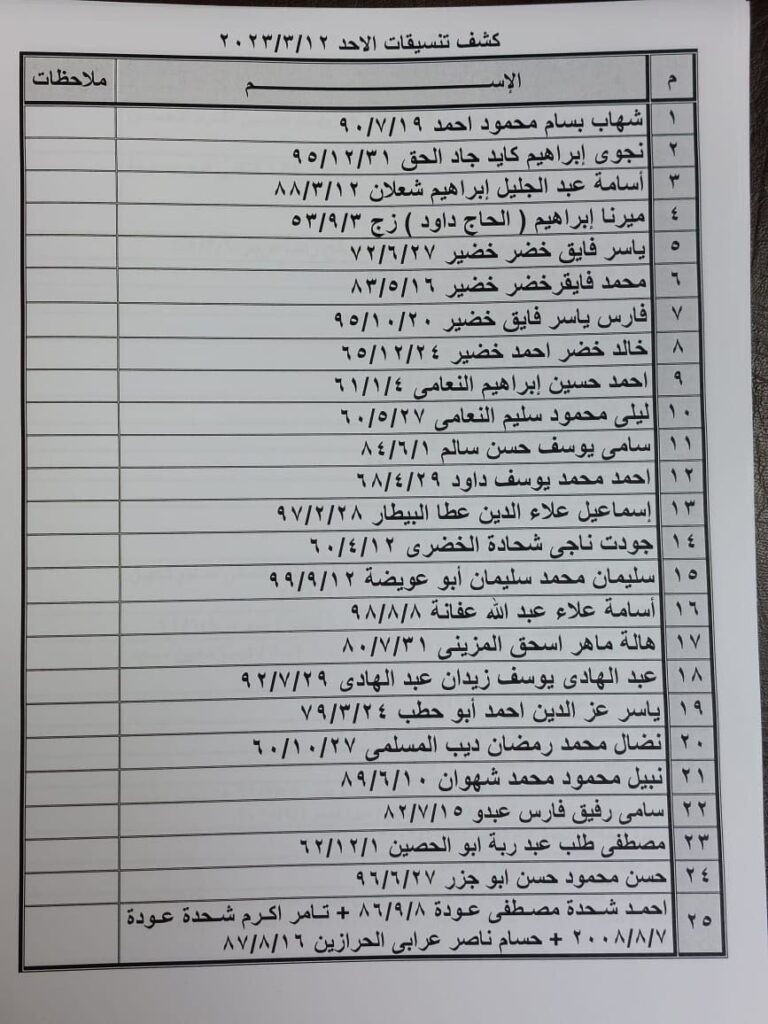 كشف تنسيقات الاحد ٢٠٢٣/٣/١٢
م الإســـــم ملاحظات
١ شهاب بسام محمود احمد ٩٠/٧/١٩
٢ نجوى إبراهيم كايد جاد الحق ٩٥/١٢/٣١
٣ أسامة عبد الجليل إبراهيم شعلان ٨٨/٣/١٢
٤ ميرنا إبراهيم ( الحاج داود ) زج ٥٣/٩/٣
٥ ياسر فايق خضر خضير ٧٢/٦/٢٧
٦ محمد فايقرخضر خضير ٨٣/٥/١٦
٧ فارس ياسر فايق خضير ٩٥/١٠/٢٠
٨ خالد خضر احمد خضير ٦٥/١٢/٢٤
٩ احمد حسين إبراهيم النعامى ٦١/١/٤
١٠ ليلى محمود سليم النعامى ٦٠/٥/٢٧
١١ سامى يوسف حسن سالم ٨٤/٦/١
١٢ احمد محمد يوسف داود ٦٨/٤/٢٩
١٣ إسماعيل علاء الدين عطا البيطار ٩٧/٢/٢٨
١٤ جودت ناجى شحادة الخضرى ٦٠/٤/١٢
١٥ سليمان محمد سليمان أبو عويضة ٩٩/٩/١٢
١٦ أسامة علاء عبد الله عفانة ٩٨/٨/٨
١٧ هالة ماهر اسحق المزينى ٨٠/٧/٣١
١٨ عبد الهادى يوسف زيدان عبد الهادى ٩٢/٧/٢٩
١٩ ياسر عز الدين احمد أبو حطب ٧٩/٣/٢٤
٢٠ نضال محمد رمضان ديب المسلمى ٦٠/١٠/٢٧
٢١ نبيل محمود محمد شهوان ٨٩/٦/١٠
٢٢ سامى رفيق فارس عبدو ٨٢/٧/١٥
٢٣ مصطفى طلب عبد ربة ابو الحصين ٦٢/١٢/١
٢٤ حسن محمود حسن ابو جزر ٩٦/٦/٢٧
٢٥ احمد شحدة مصطفى عودة ٨٦/٩/٨ + تامر اكرم شحدة عودة
٢٠٠٨/٨/٧ + حسام ناصر عرابى الحرازين ٨٧/٨/١٦